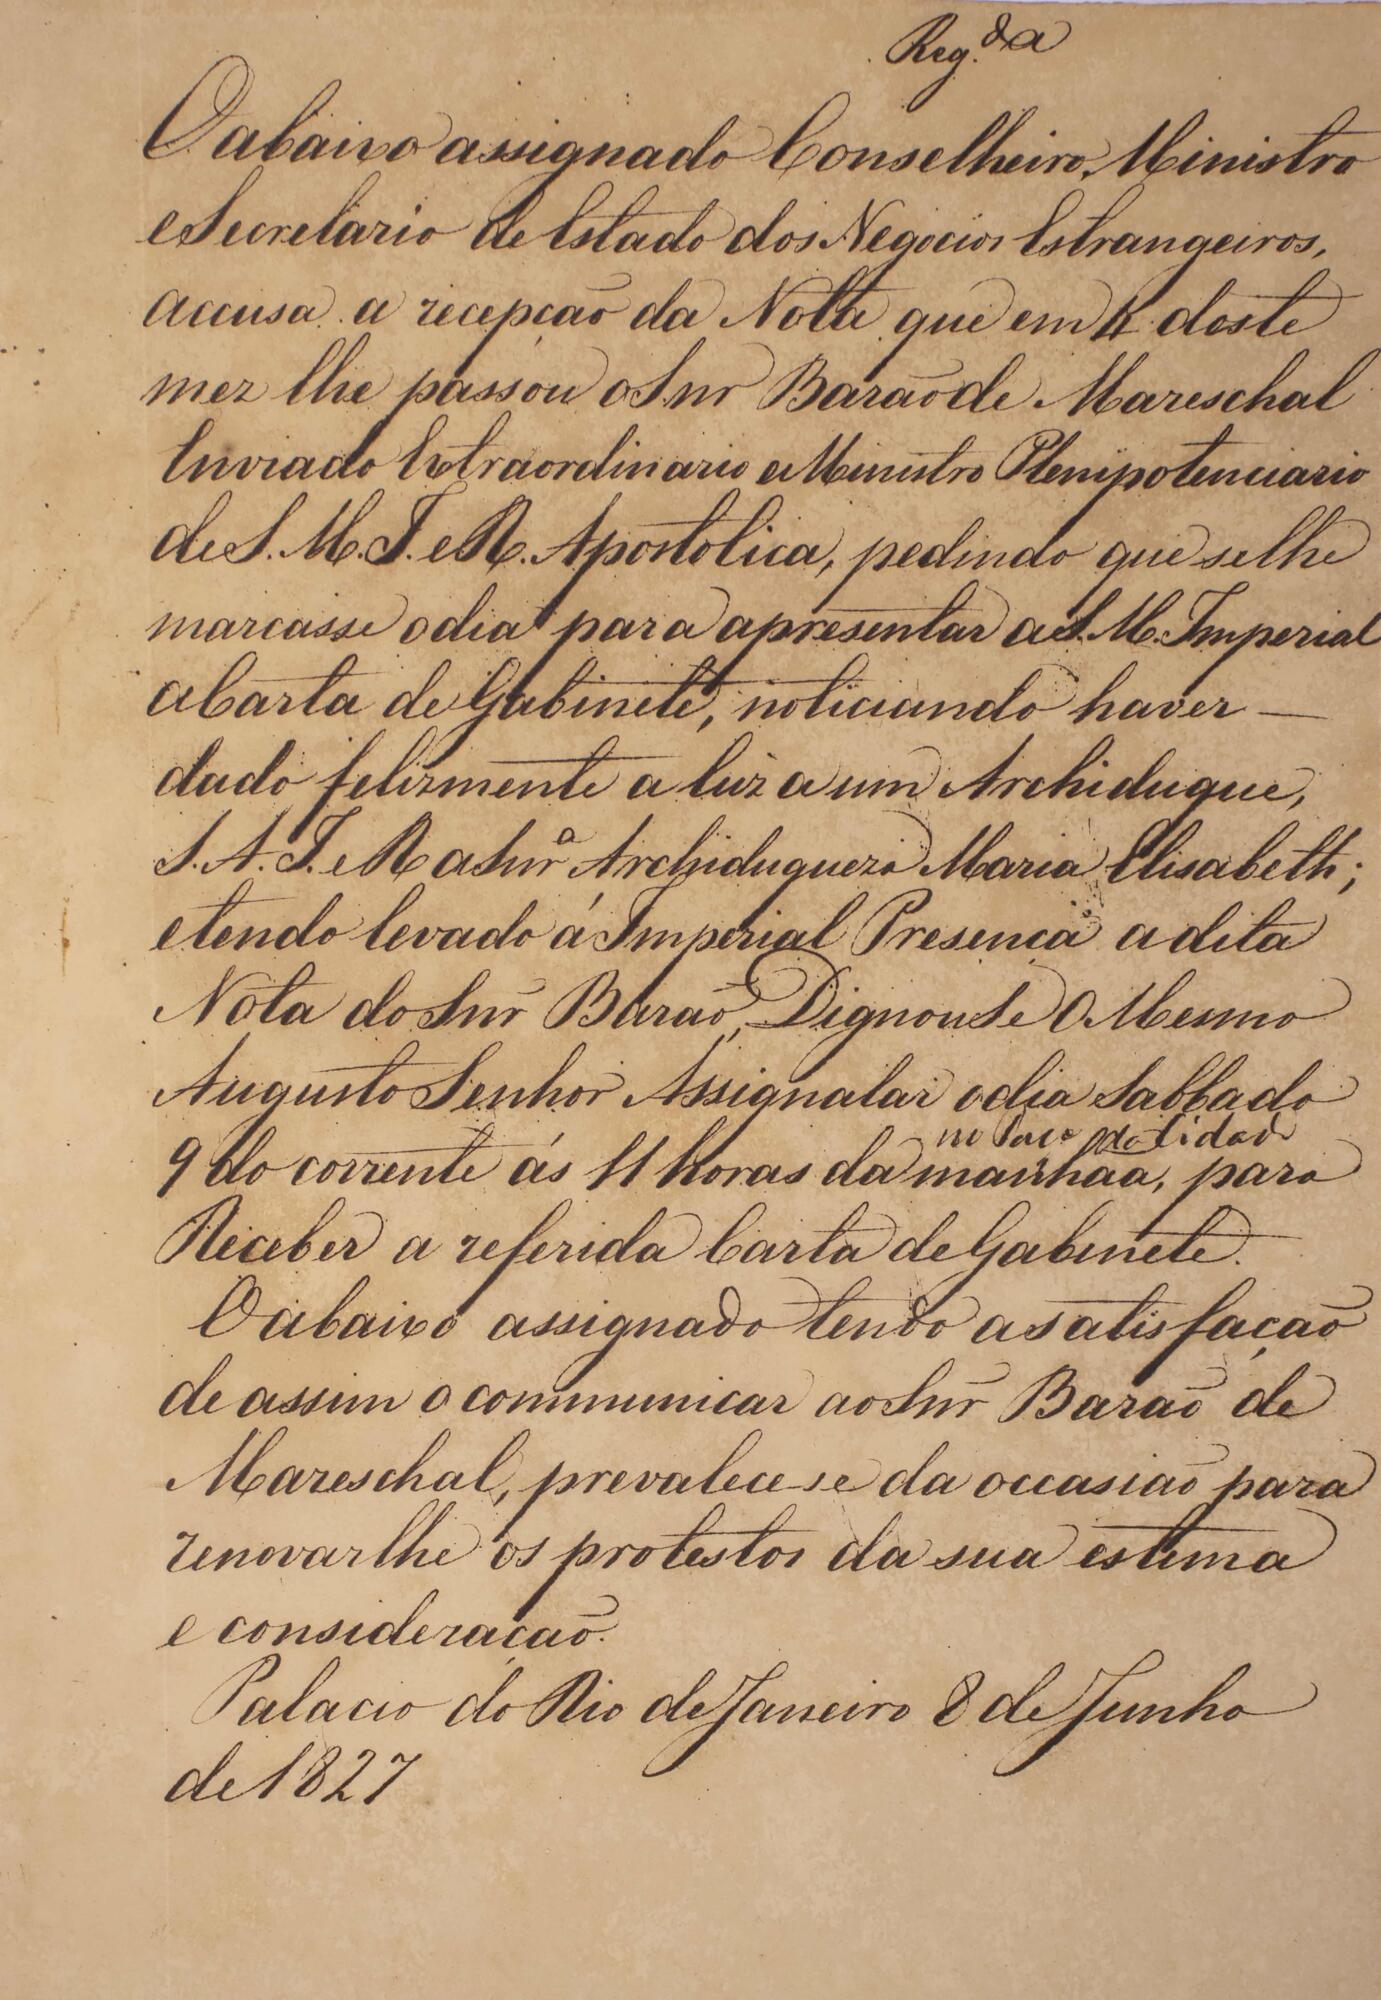 Reg.da
O abaixo assignado Conselheiro, Ministro
e Secretario de Estado dos Negocios Estrangeiros,
accusa a recepção da Nota que em 4 deste
mez lhe passou o Snr Barão de Mareschal
Enviado Extraordinario e Ministro Plenipotenciario
de S. M. I. e R. Apostolica, pedindo que se lhe
marcasse o dia para apresentar a S. M. Imperial
a Carta de Gabinete, noticiando haver —
dado felizmente a luz a um Archiduque,
S. A. I. e R a Snrª Archiduqueza Maria Elisabeth;
e tendo levado á Imperial Presença a dita
Nota do Snr Barão, Dignou Se O Mesmo
Augusto Senhor Assignalar o dia Sabbado
no Paço da Cidade
9 do corrente ás 11 horas da manhãa, para
Receber a referida Carta de Gabinete.
O abaixo assignado tendo a satisfação
de assim o communicar ao Snr Barão de
Mareschal, prevalece-se da occasião para
renovar lhe os protestos da sua estima
e consideração.
Palacio do Rio de Janeiro 8 de Junho
de 1827